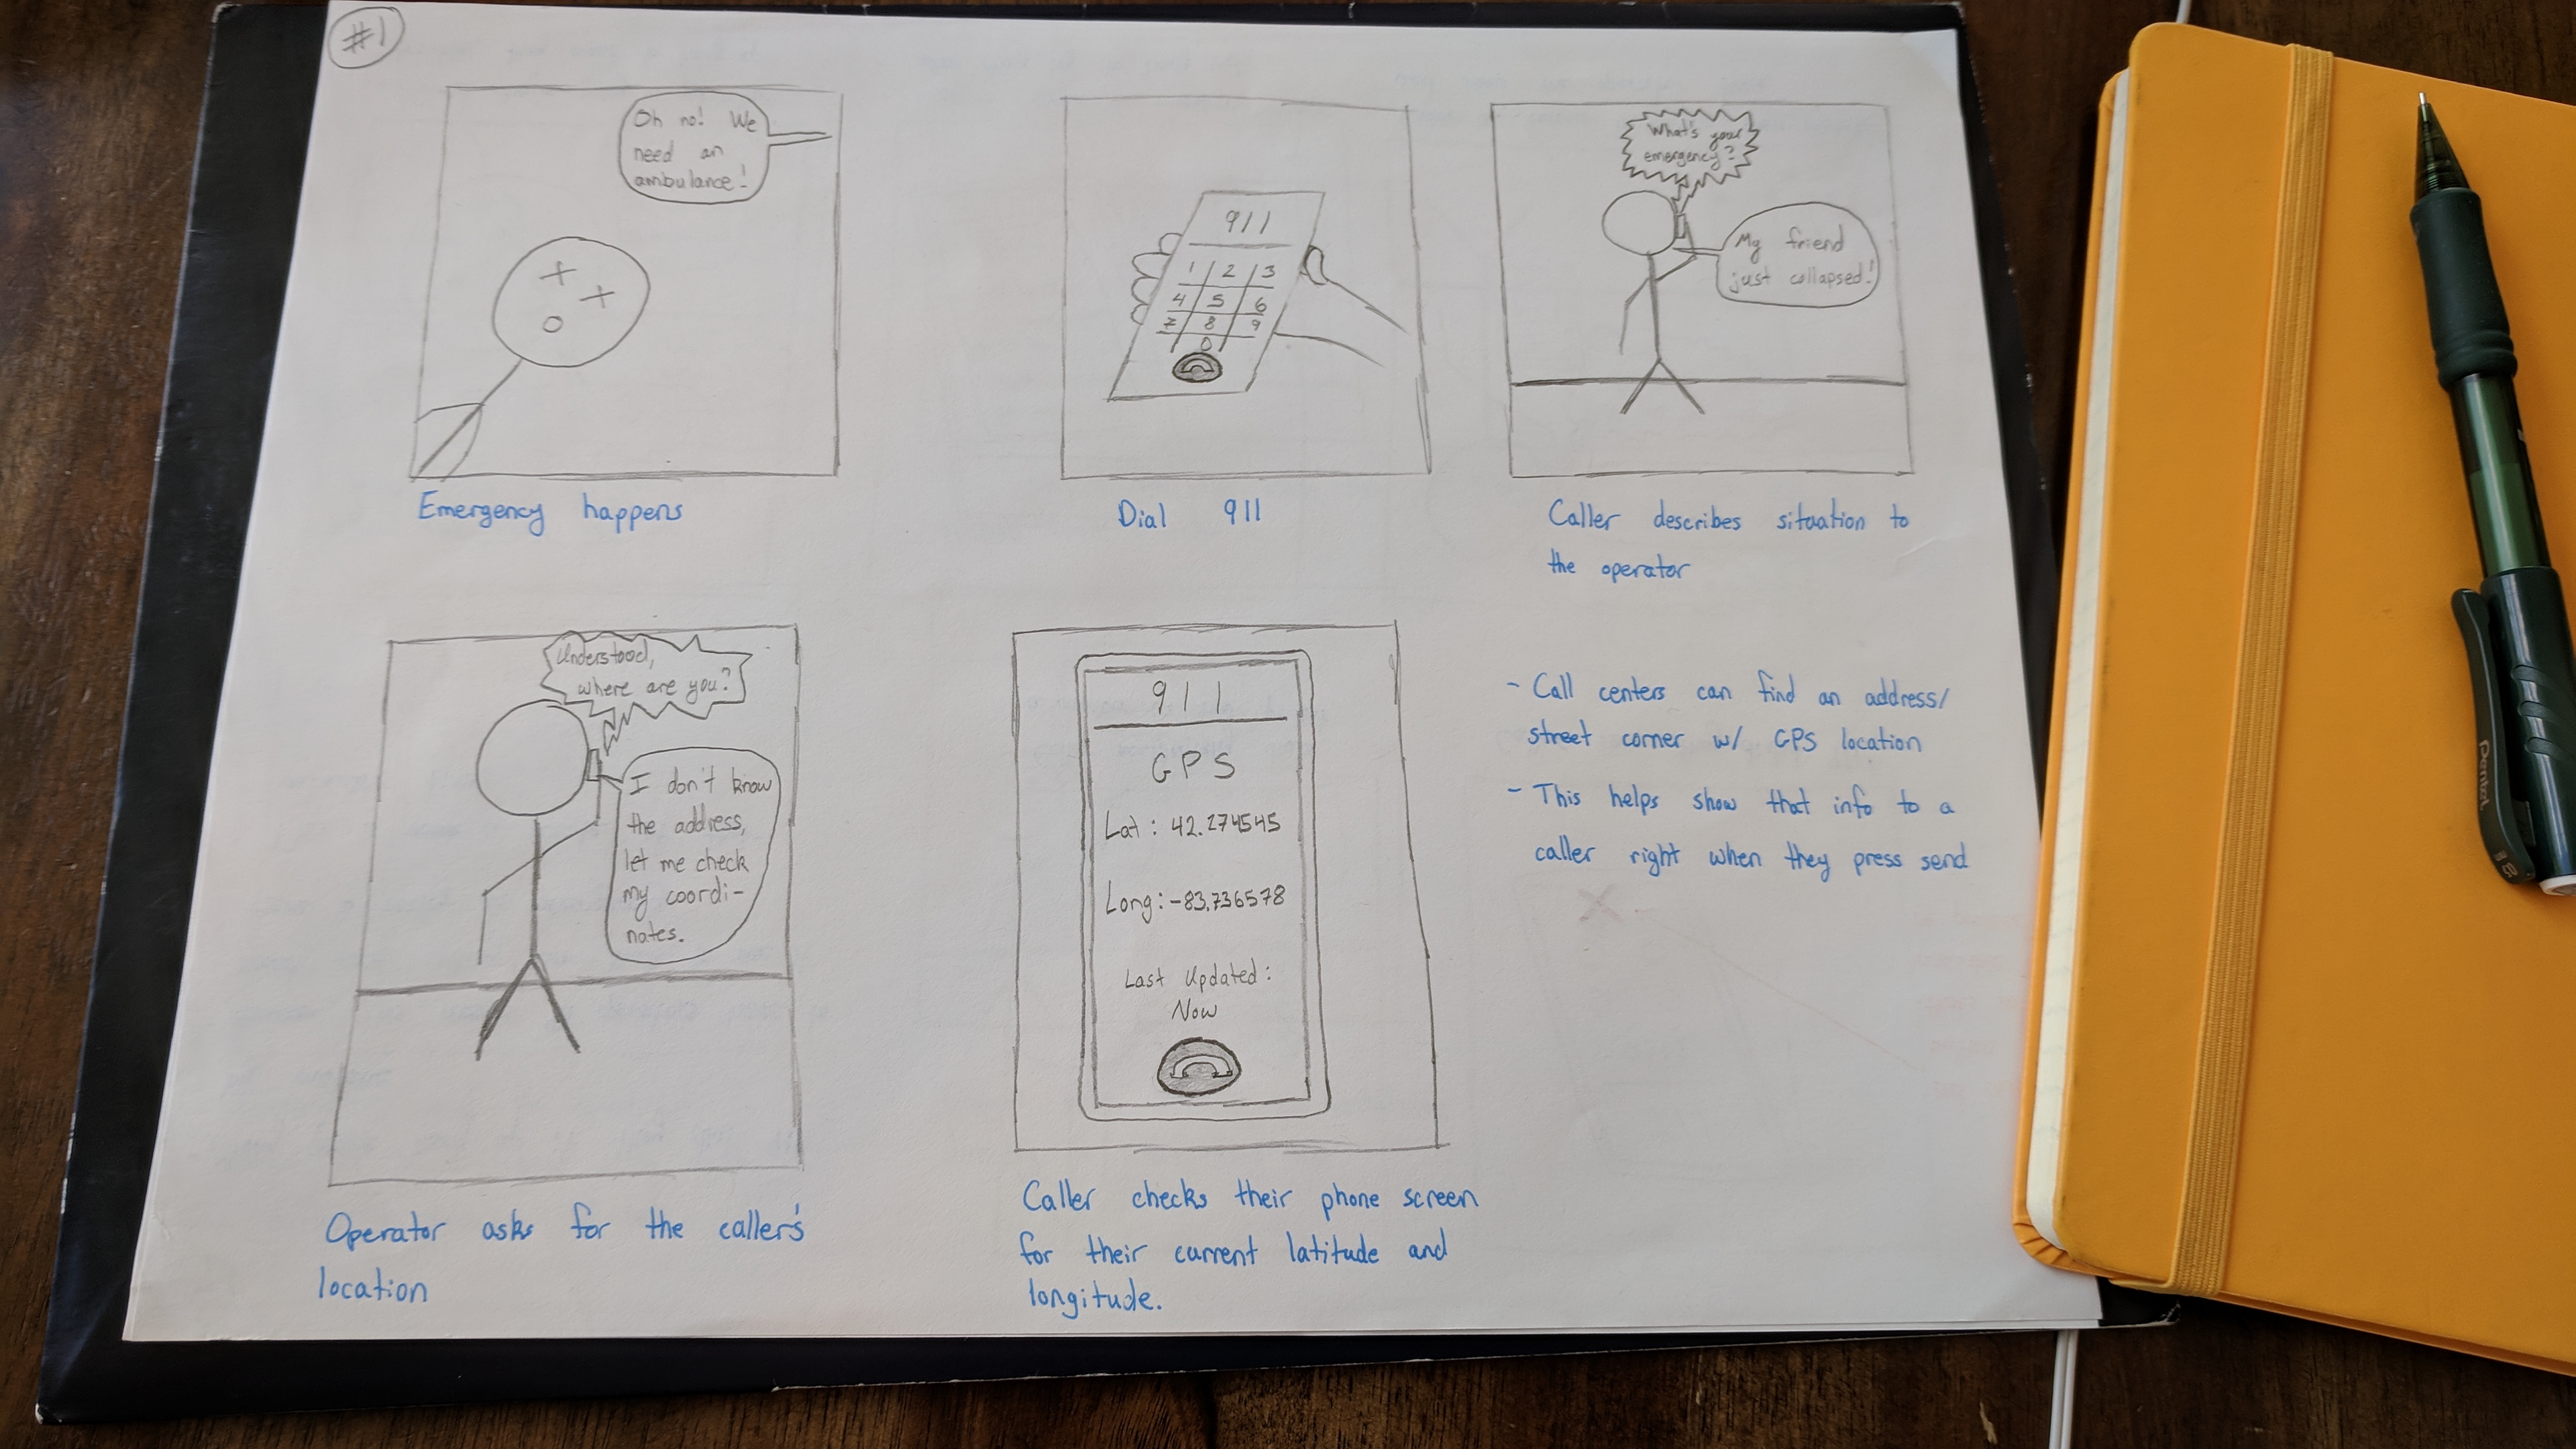 #1
Oh no! We
need an
ambulance!
Emergency happens
911
1 2 3
4 5 6
7 8 9
0
Dial 911
What's your
emergency?
My friend
just collapsed!
Caller describes situation to
the operator
Understood,
where are you?
I don't know
the address,
let me check
my coordi-
nates.
Operator asks for the caller's
location
911
GPS
Lat: 42.274545
Long: -83.736578
Last Updated:
Now
Caller checks their phone screen
for their current latitude and
longitude.
- Call centers can find an address/
street corner w/ GPS location
- This helps show that info to a
caller right when they press send
Pentel